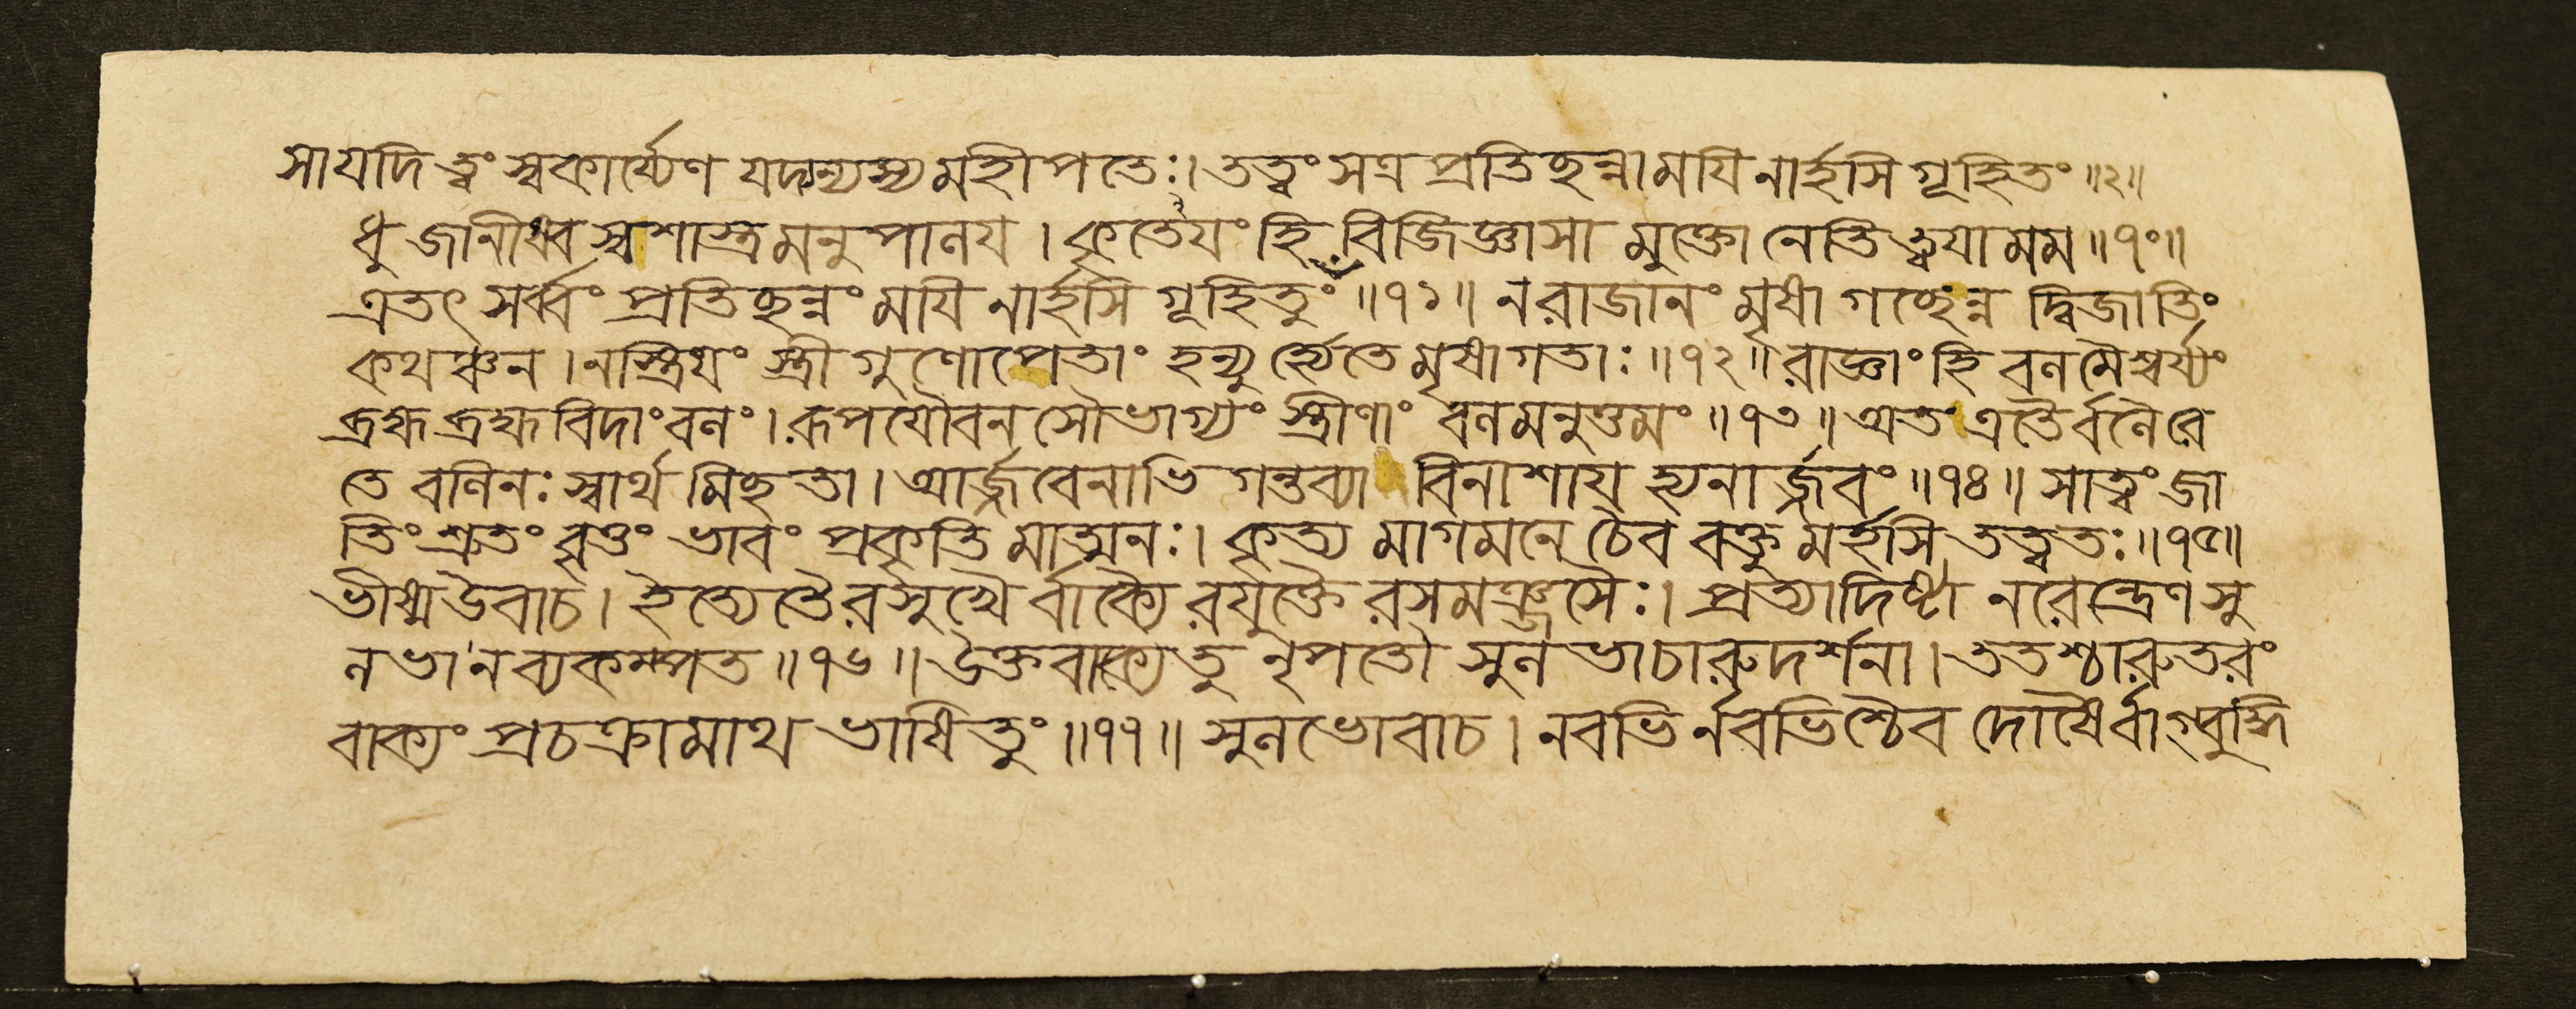 সা যদি ত্বং স্বকার্য্যেণ যদন্যস্য মহীপতেঃ। তত্ত্বং সত্র প্রতিছন্না ময়ি নার্হসি গূহিতং ॥২॥
ধু জানীষ্ব স্বশাস্ত্রমনুপানয়। কৃতেয়ং হি বিজিজ্ঞাসা মুক্তো নেতি ত্বয়া মম ॥৭০॥
এতৎ সর্ব্বং প্রতিছন্নং ময়ি নার্হসি গূহিতুং ॥৭১॥ ন রাজানং মৃষা গচ্ছেন্ন দ্বিজাতিং
কথঞ্চন। ন স্ত্রিয়ং স্ত্রীগুণোপেতাং হন্যুর্হ্যেতে মৃষা গতাঃ ॥৭২॥ রাজ্ঞাং হি বনমৈশ্বর্য্যং
ব্রহ্ম ব্রহ্মবিদাং বনং। রূপযৌবনসৌভাগ্যং স্ত্রীণাং বনমনুত্তমং ॥৭৩॥ অত এতৈর্বনৈরে
তে বনিনঃ স্বার্থমিছতা। আর্জ্জবেনাভিগন্তব্যা বিনাশায় হ্যনার্জ্জবং ॥৭৪॥ সা ত্বং জা
তিং শ্রুতং বৃত্তং ভাবং প্রকৃতিমাত্মনঃ। কৃত্যমাগমনে চৈব বক্তুমর্হসি তত্ত্বতঃ ॥৭৫॥
ভীষ্ম উবাচ। ইত্যেতৈরসুখৈর্বাক্যৈরযুক্তৈরসমঞ্জসৈঃ। প্রত্যাদিষ্টা নরেন্দ্রেণ সু
নভা ন ব্যকম্পত ॥৭৬॥ উক্তবাক্য তু নৃপতৌ সুনভা চারুদর্শনা। ততশ্চারুতরং
বাক্যং প্রচক্রামাথ ভাষিতুং ॥৭৭॥ সুনভোবাচ। নবভির্নবভিশ্চৈব দোষৈর্বাগ্বুদ্ধি